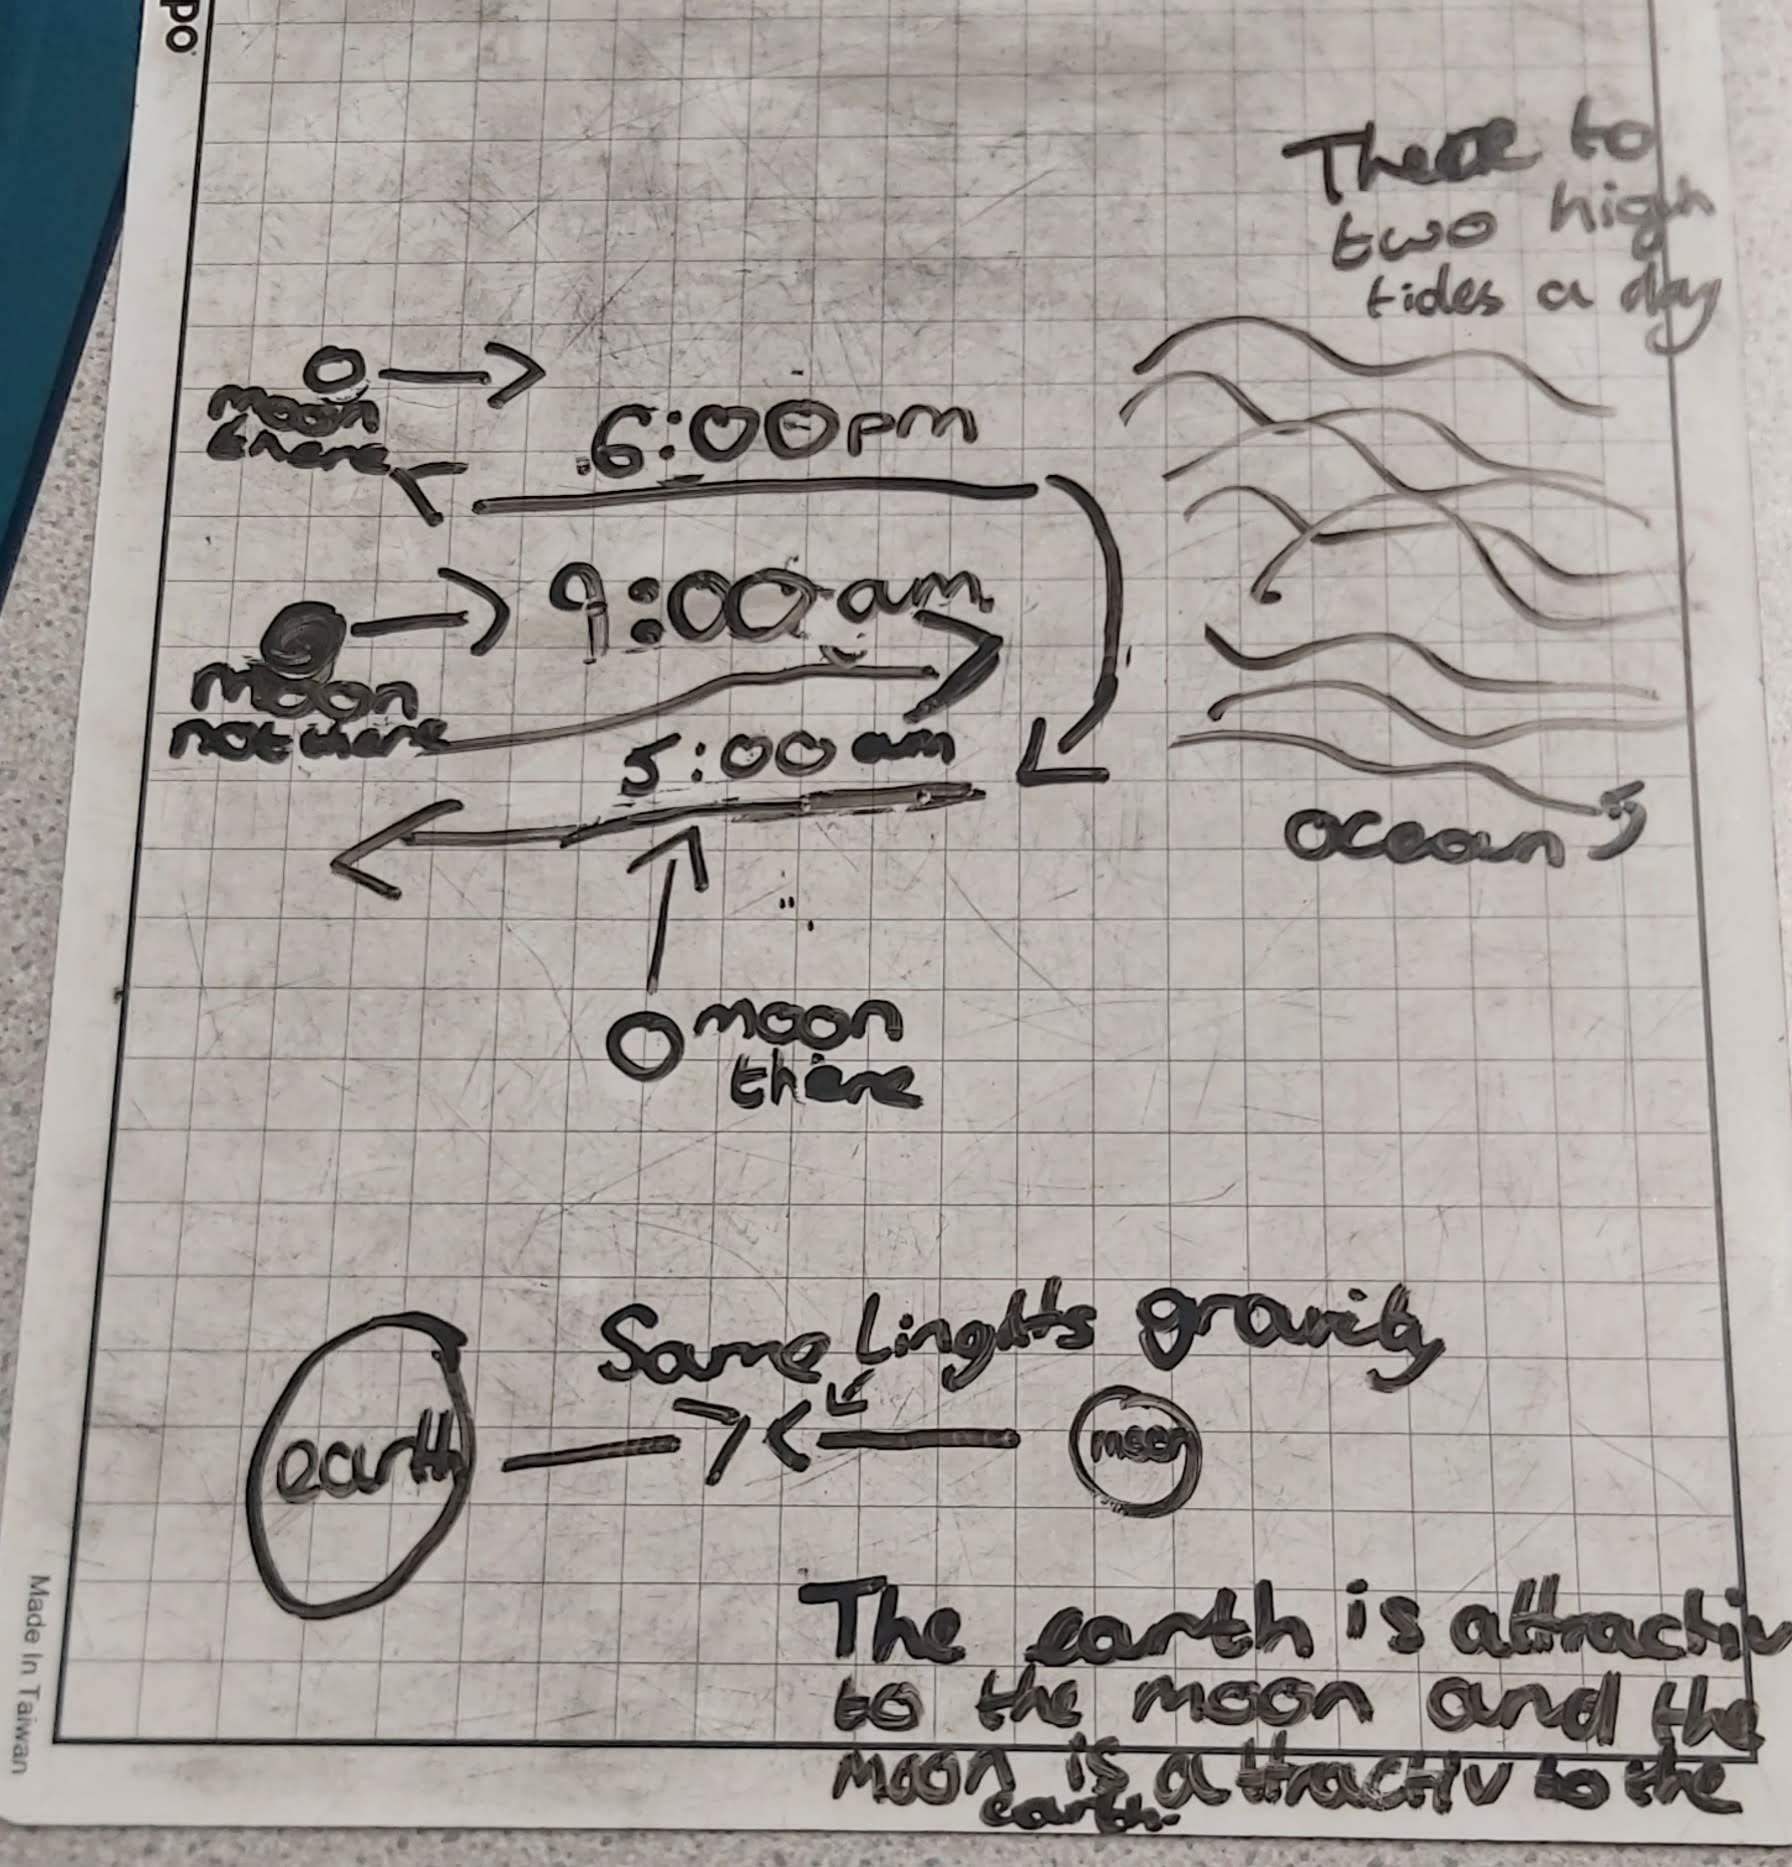 po
There to
two high
tides a day
moon
there
6:00pm
9:00 am
moon
not there
5:00 am
ocean
moon
there
Same Linghts gravity
earth
moon
The earth is attractiv
to the moon and the
moon is attractiv to the
earth.
Made In Taiwan